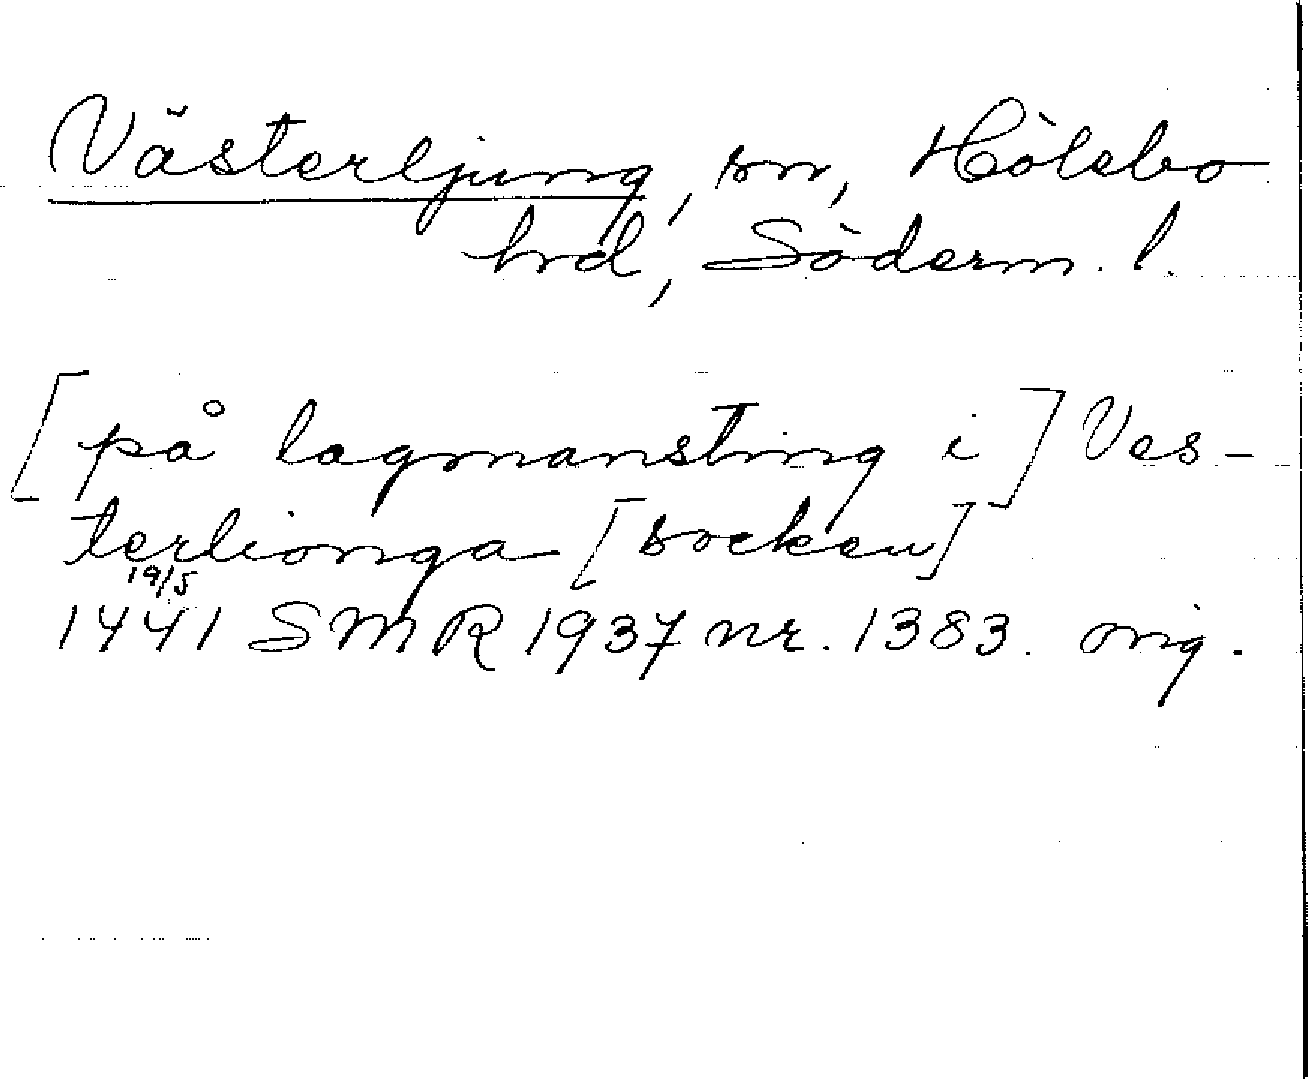 Västerljung, sn, Hölebo
hrd, Söderm. l.
[på lagmansting i] Ves-
terlionga [socken]
19/5
1441 SMR 1937 nr. 1383. orig.